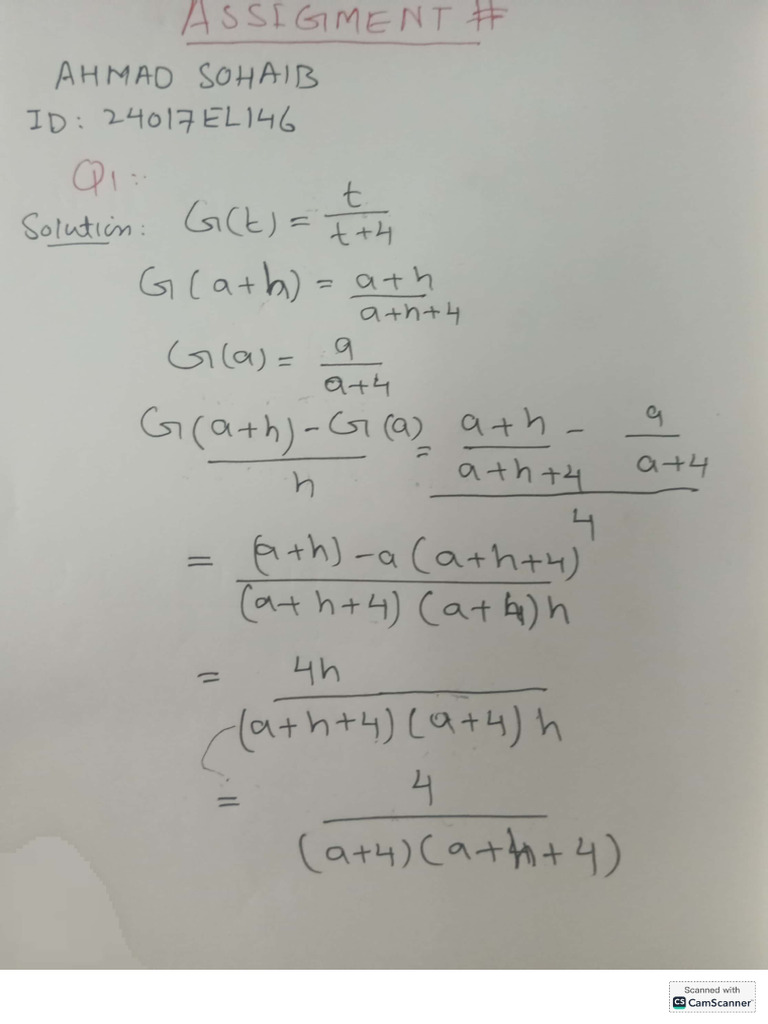 ASSIGMENT #
AHMAD SOHAIB
ID: 24017EL146
Q1:
Solution: G(t) = t/(t+4)
G(a+h) = (a+h)/(a+h+4)
G(a) = a/(a+4)
(G(a+h) - G(a))/h = ((a+h)/(a+h+4) - a/(a+4))/4
= ((a+h) - a(a+h+4))/((a+h+4)(a+4)h)
= 4h/((a+h+4)(a+4)h)
= 4/((a+4)(a+h+4))
Scanned with
CS CamScanner